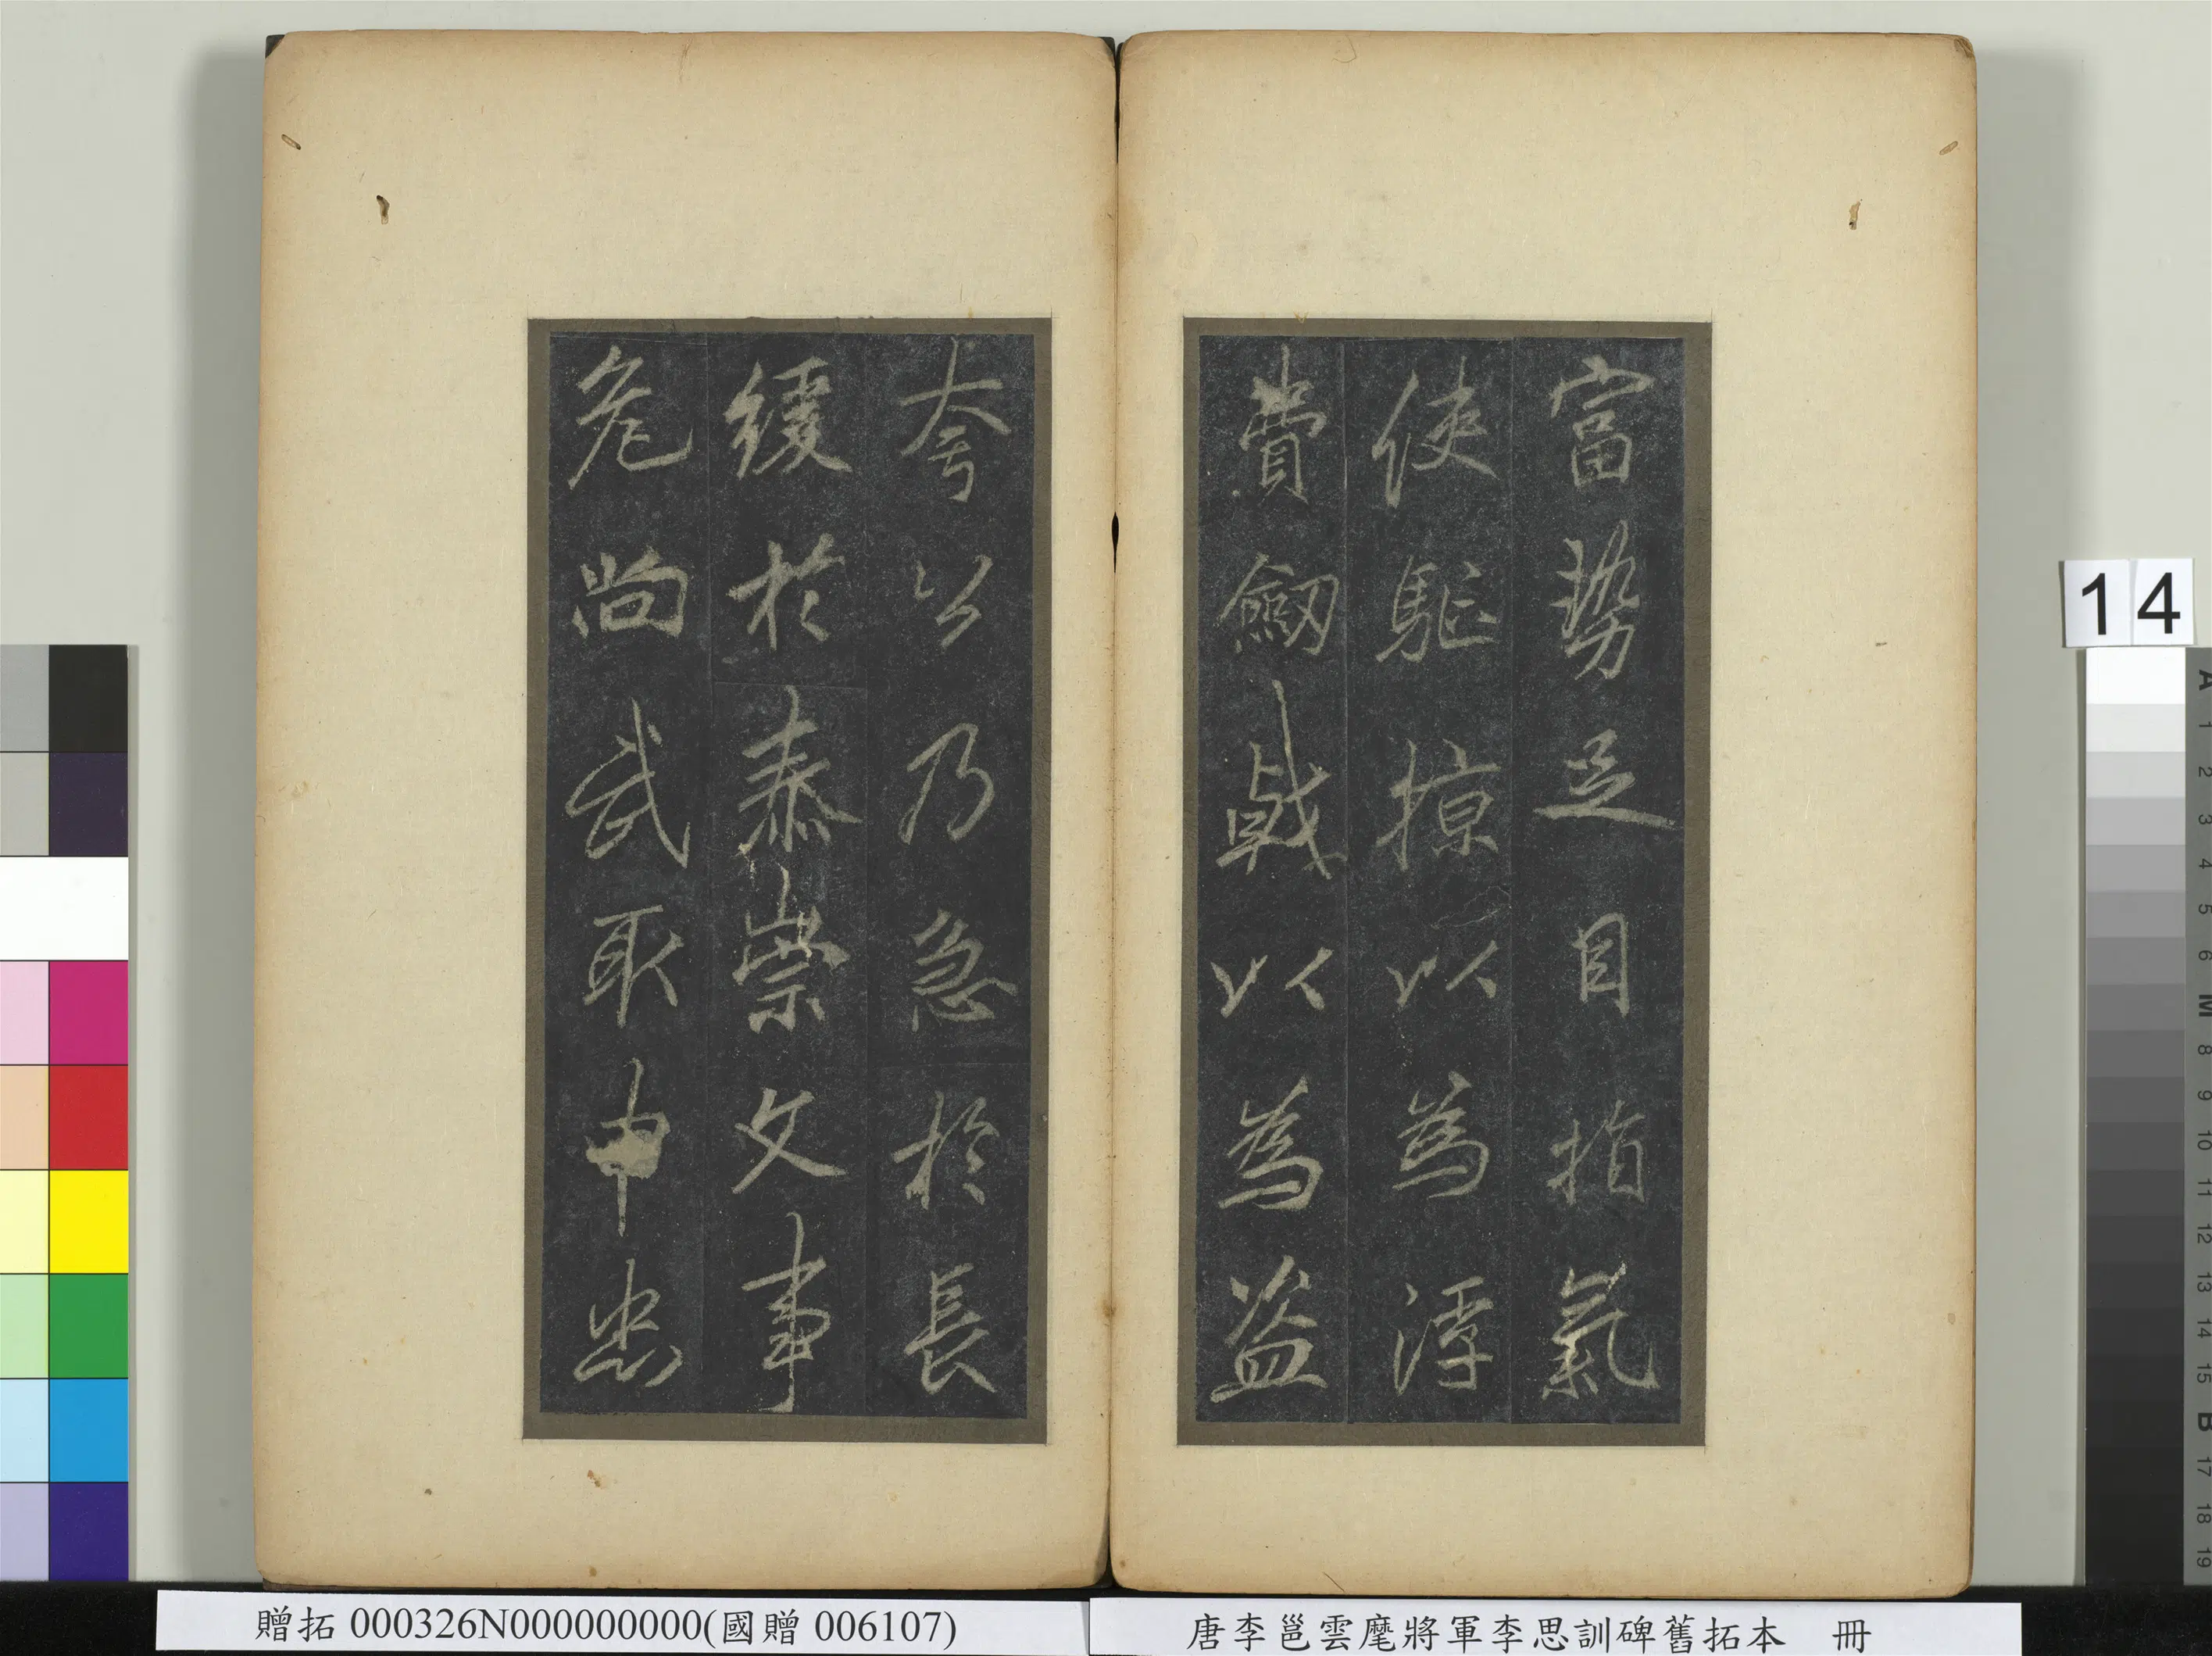 富勢足目指氣
使駈掠以為浮
費劔戟以為盗
夸公乃急於長
緩於泰崇文事
危尚武取申忠
14
贈拓 000326N000000000(國贈 006107)
唐李邕雲麾將軍李思訓碑舊拓本 冊
A 1 2 3 4 5 6 M 8 9 10 11 12 13 14 15 B 17 18 19